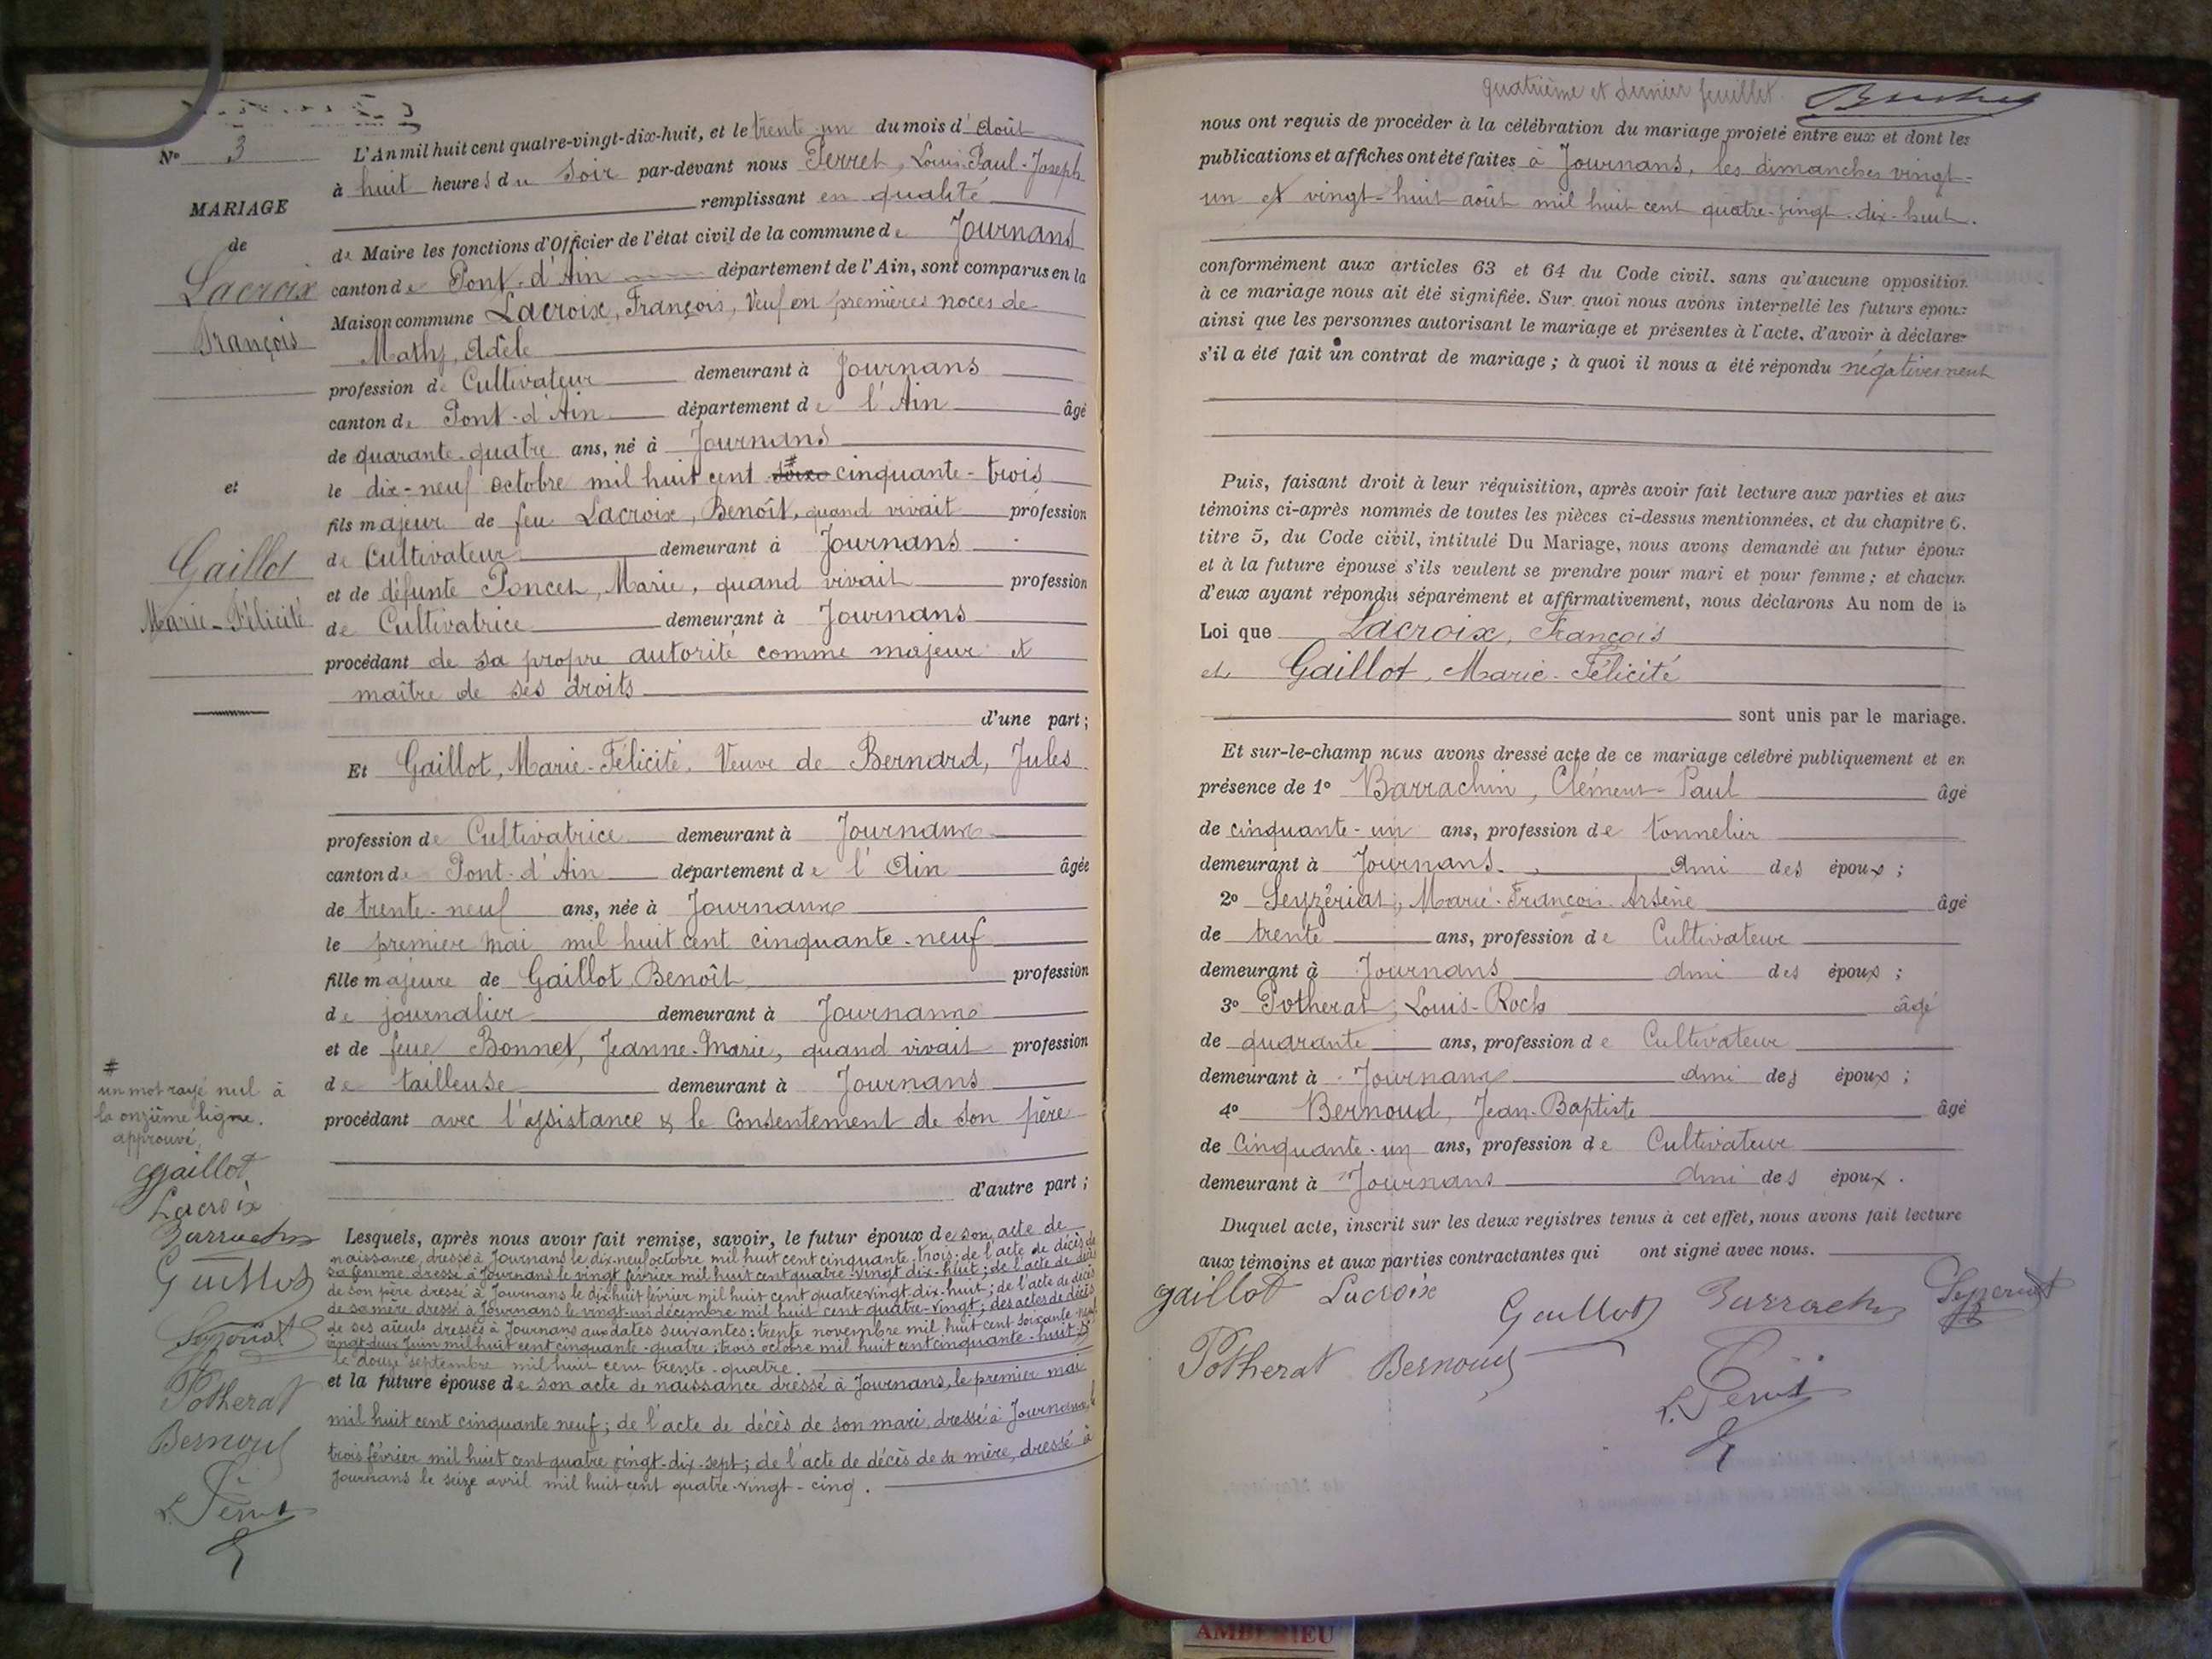 N° 3
MARIAGE
de
Lacroix
François
et
Gaillot
Marie-Félicité
un mot rayé nul à
la onzième ligne.
approuvé.
gaillot
Lacroix
Barrachin
Gaillot
Potherat
Bernoud
L'An mil huit cent quatre-vingt-dix-huit, et le trente-un du mois d'Août
à huit heures du soir par-devant nous Perret, Louis-Paul-Joseph
remplissant en qualité
de Maire les fonctions d'Officier de l'état civil de la commune de Journans
canton de Pont-d'Ain département de l'Ain, sont comparus en la
Maison commune Lacroix, François, Veuf en premières noces de
Mathy, Adèle
profession de Cultivateur demeurant à Journans
canton de Pont-d'Ain département de l'Ain âgé
de quarante-quatre ans, né à Journans
le dix-neuf octobre mil huit cent cinquante-trois
fils majeur de feu Lacroix, Benoît, quand vivait profession
de Cultivateur demeurant à Journans
et de défunte Poncet, Marie, quand vivait profession
de Cultivatrice demeurant à Journans
procédant de sa propre autorité comme majeur et
maître de ses droits
d'une part;
Et Gaillot, Marie-Félicité, Veuve de Bernard, Jules
profession de Cultivatrice demeurant à Journans
canton de Pont-d'Ain département de l'Ain âgée
de trente-neuf ans, née à Journans
le premier mai mil huit cent cinquante-neuf
fille majeure de Gaillot Benoît profession
de journalier demeurant à Journans
et de feue Bonnet, Jeanne-Marie, quand vivait profession
de tailleuse demeurant à Journans
procédant avec l'assistance & le Consentement de son père
d'autre part;
Lesquels, après nous avoir fait remise, savoir, le futur époux de son acte de
naissance, dressé à Journans le dix-neuf octobre mil huit cent cinquante-trois; de l'acte de décès de
sa femme dressé à Journans le vingt février mil huit cent quatre-vingt dix-huit; de l'acte de décès
de son père dressé à Journans le dix-huit février mil huit cent quatre vingt dix-huit; de l'acte de décès
de sa mère dressé à Journans le vingt-un décembre mil huit cent quatre-vingt; des actes de décès
de ses aïeuls dressés à Journans aux dates suivantes: trente novembre mil huit cent soixante-neuf
vingt-deux Juin mil huit cent cinquante-quatre, trois octobre mil huit cent cinquante-huit &
le douze septembre mil huit cent trente-quatre.
et la future épouse de son acte de naissance dressé à Journans, le premier mai
mil huit cent cinquante neuf; de l'acte de décès de son mari, dressé à Journans, le
trois février mil huit cent quatre vingt-dix-sept; de l'acte de décès de sa mère, dressé à
Journans le seize avril mil huit cent quatre-vingt-cinq.
quatrième et dernier feuillet.
nous ont requis de procéder à la célébration du mariage projeté entre eux et dont les
publications et affiches ont été faites à Journans, les dimanches vingt-
un et vingt-huit août mil huit cent quatre-vingt-dix-huit.
conformément aux articles 63 et 64 du Code civil, sans qu'aucune opposition
à ce mariage nous ait été signifiée. Sur quoi nous avons interpellé les futurs époux
ainsi que les personnes autorisant le mariage et présentes à l'acte, d'avoir à déclarer
s'il a été fait un contrat de mariage; à quoi il nous a été répondu négativement
Puis, faisant droit à leur réquisition, après avoir fait lecture aux parties et aux
témoins ci-après nommés de toutes les pièces ci-dessus mentionnées, et du chapitre 6,
titre 5, du Code civil, intitulé Du Mariage, nous avons demandé au futur époux
et à la future épouse s'ils veulent se prendre pour mari et pour femme; et chacun
d'eux ayant répondu séparément et affirmativement, nous déclarons Au nom de la
Loi que Lacroix, François
et Gaillot, Marie-Félicité
sont unis par le mariage.
Et sur-le-champ nous avons dressé acte de ce mariage célébré publiquement et en
présence de 1° Barrachin, Clément-Paul âgé
de cinquante-un ans, profession de tonnelier
demeurant à Journans. ami des époux;
2° Seyzériat, Marie-François-Arsène âgé
de trente ans, profession de Cultivateur
demeurant à Journans ami des époux;
3° Potherat, Louis-Roch âgé
de quarante ans, profession de Cultivateur
demeurant à Journans ami des époux;
4° Bernoud, Jean-Baptiste âgé
de Cinquante-un ans, profession de Cultivateur
demeurant à Journans ami des époux.
Duquel acte, inscrit sur les deux registres tenus à cet effet, nous avons fait lecture
aux témoins et aux parties contractantes qui ont signé avec nous.
gaillot Lacroix Gaillot Barrachin
Potherat Bernoud
AMBERIEU